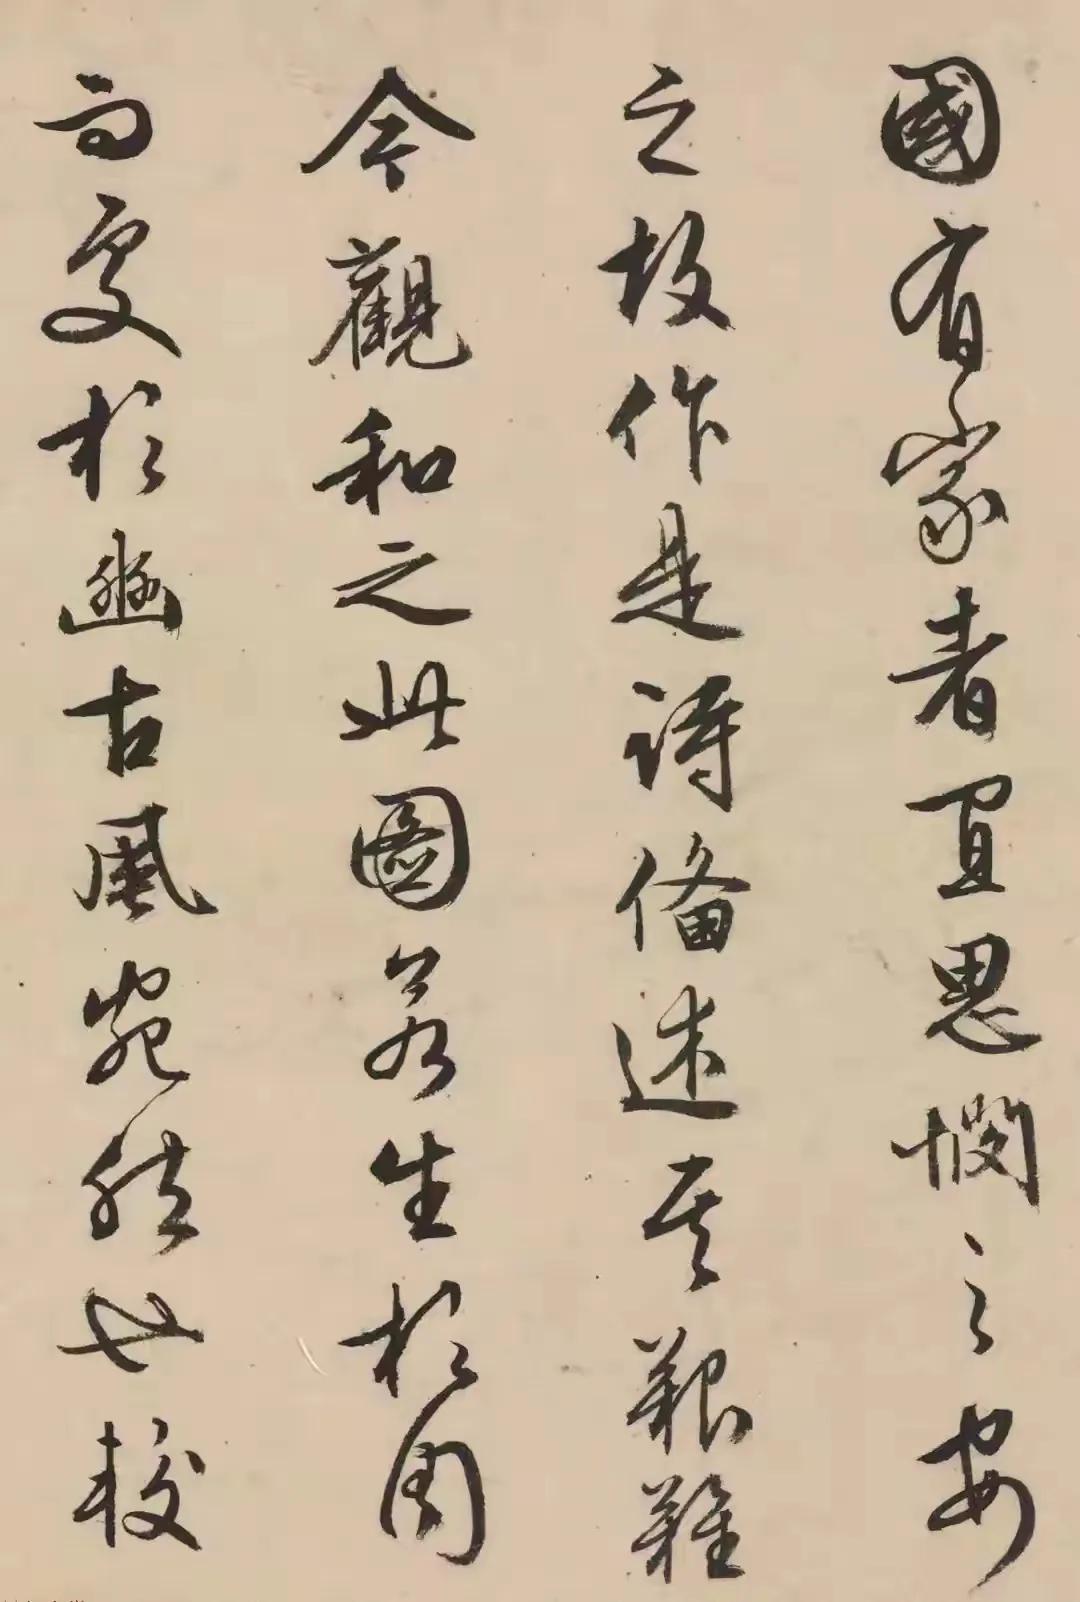 國有家者宜思憫之安
之故作是詩備述其艱難
今觀和之此圖若生於周
而處於豳古風宛然也較